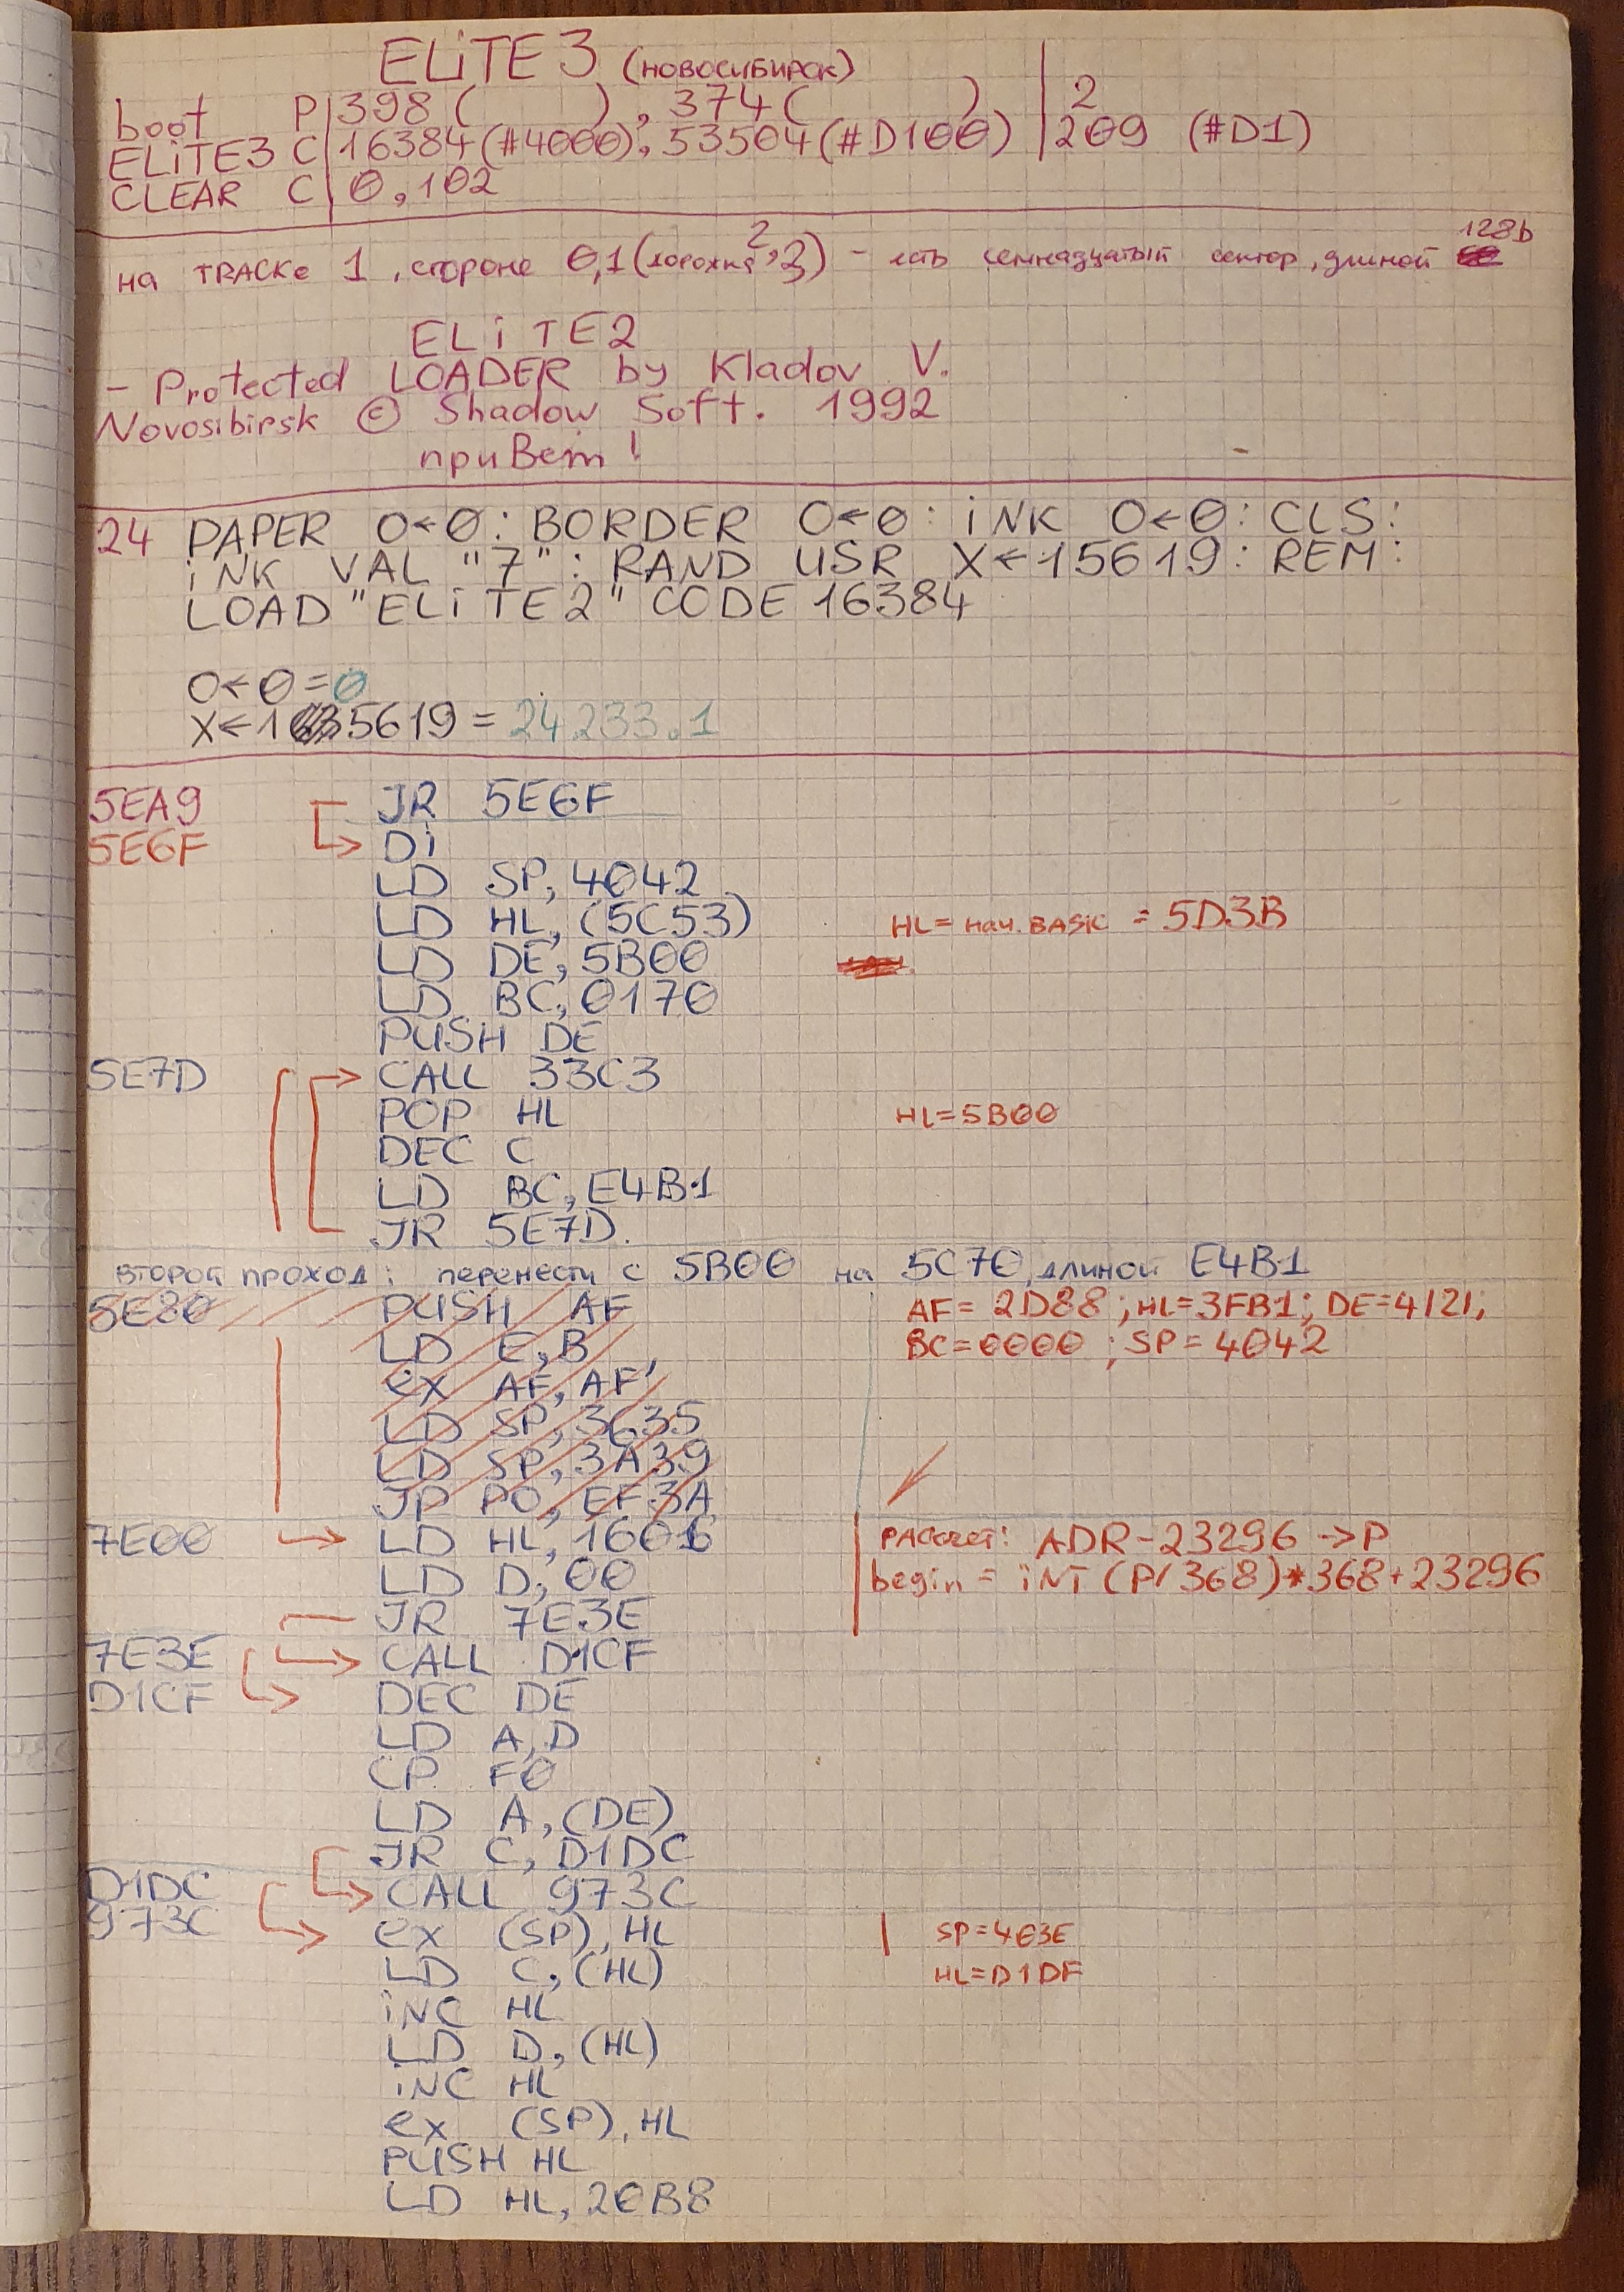 ELiTE3 (НОВОСИБИРСК)
boot P 398 ( ), 374 ( ) 2
ELiTE3 C 16384 (#4000), 53504 (#D100) 209 (#D1)
CLEAR C 0, 102
на TRACKe 1, стороне 0,1 (дорожка 2,3) - есть семнадцатый сектор, длиной 128b
ELiTE2
- Protected LOADER by Kladov V.
Novosibirsk © Shadow Soft. 1992
приВет!
24 PAPER O←0: BORDER O←0: iNK O←0: CLS:
iNK VAL "7": RAND USR X←15619: REM:
LOAD "ELiTE2" CODE 16384
O←0=0
X←15619 = 24233.1
5EA9 JR 5E6F
5E6F Di
LD SP, 4042
LD HL, (5C53) HL= нач. BASiC = 5D3B
LD DE, 5B00
LD BC, 0170
PUSH DE
5E7D CALL 33C3
POP HL HL=5B00
DEC C
LD BC, E4B1
JR 5E7D.
ВТОРОЙ ПРОХОД: перенести с 5B00 на 5C70, длиной E4B1
5E80 PUSH AF AF= 2D88; HL=3FB1; DE=4121;
LD E, B BC=0000; SP=4042
ex AF, AF'
LD SP, 3C35
LD SP, 3A39
JP PO, EF3A
7E00 → LD HL, 1606 РАСчет: ADR-23296 → P
LD D, 00 begin = iNT (P/368)*368+23296
JR 7E3E
7E3E CALL D1CF
D1CF DEC DE
LD A, D
CP F0
LD A, (DE)
JR C, D1DC
D1DC CALL 973C
973C ex (SP), HL SP=403E
LD C, (HL) HL=D1DF
iNC HL
LD D, (HL)
iNC HL
ex (SP), HL
PUSH HL
LD HL, 20B8